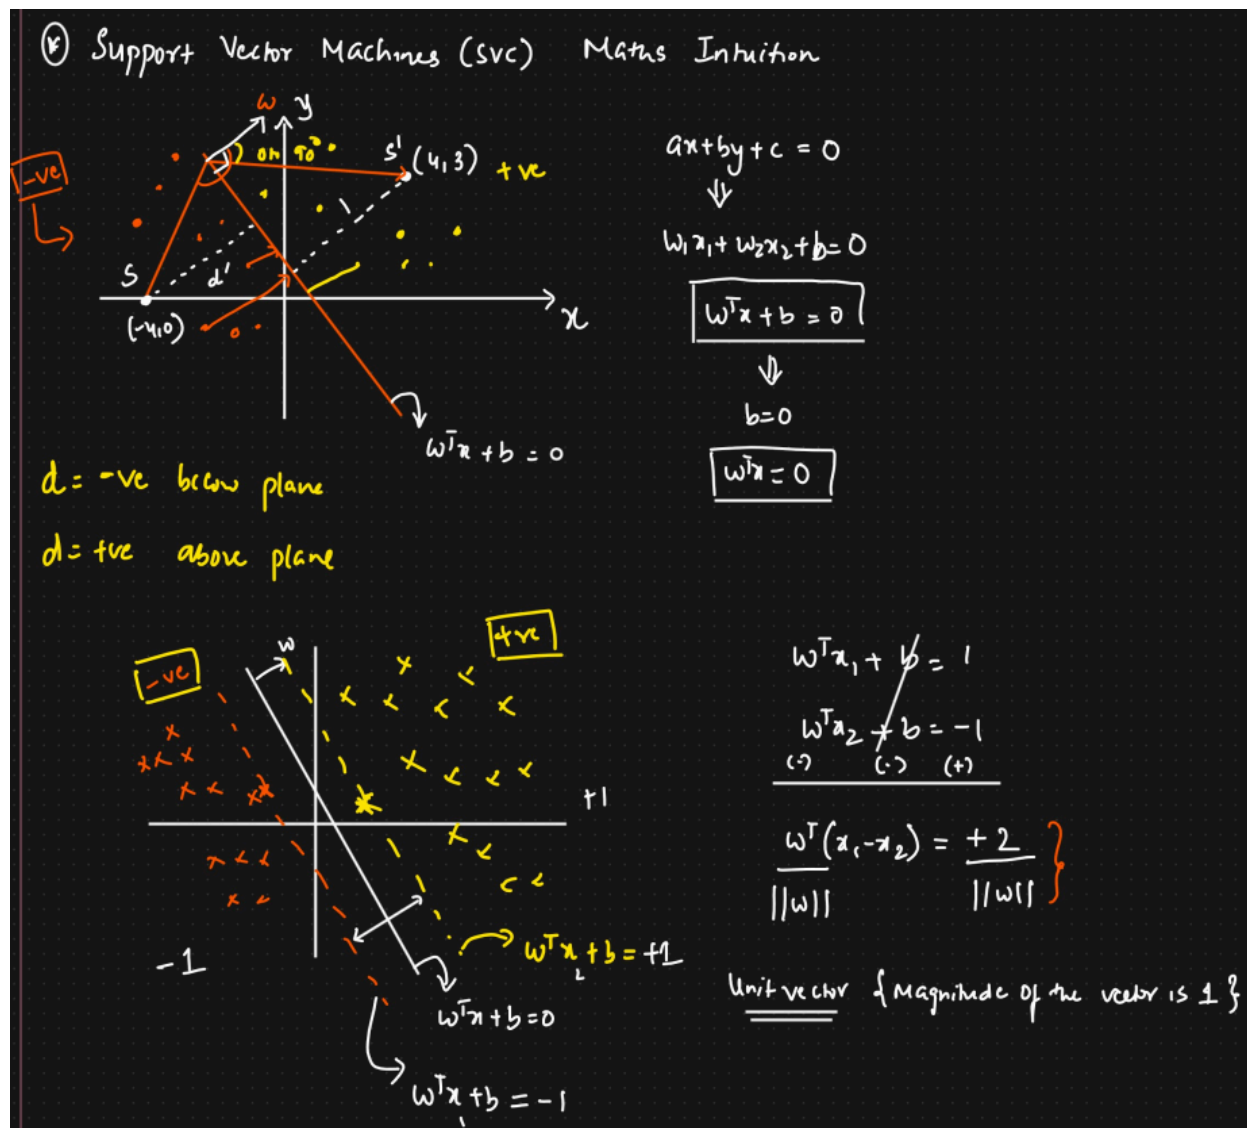 * Support Vector Machines (SVC) Maths Intuition
w y
-ve
on 90°
S' (4,3) +ve
S
d'
(-4,0)
x
wᵀx + b = 0
ax+by+c = 0
⇓
w₁x₁+ w₂x₂+b=0
wᵀx + b = 0
⇓
b=0
wᵀx = 0
d = -ve below plane
d = +ve above plane
-ve
w
+ve
+1
-1
wᵀx₂ + b = +1
wᵀx+b=0
wᵀx₁+b = -1
wᵀx₁ + b = 1
wᵀx₂ + b = -1
(-) (-) (+)
wᵀ(x₁-x₂) = +2
||w|| ||w||
Unit vector {Magnitude of the vector is 1}